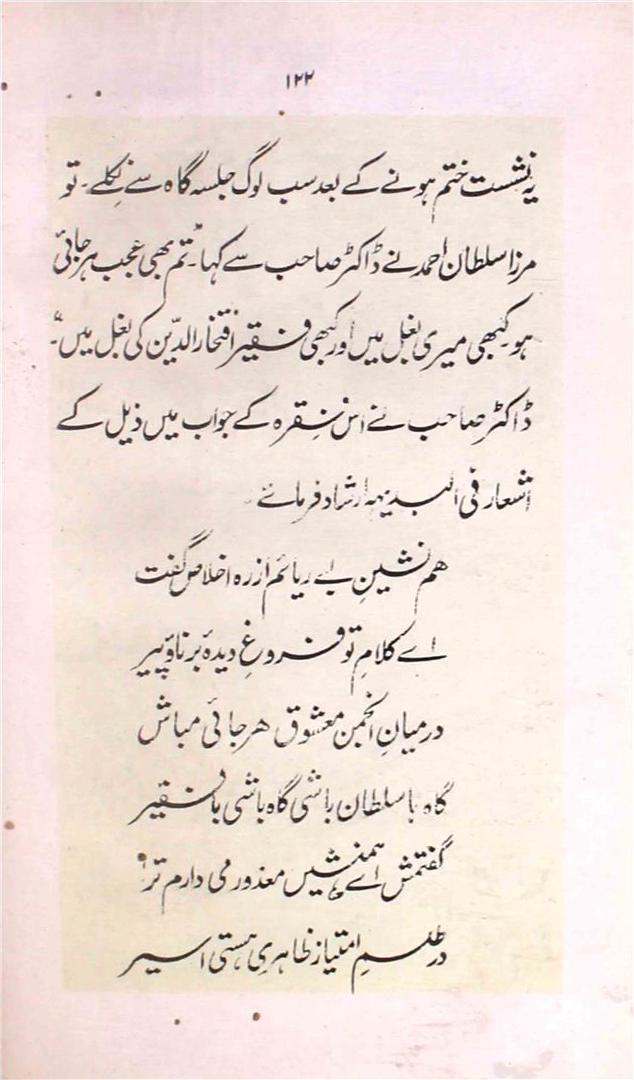 ۱۲۲
یہ نشست ختم ہونے کے بعد سب لوگ جلسہ گاہ سے نکلے۔ تو
مرزا سلطان احمد نے ڈاکٹر صاحب سے کہا۔ "تم بھی عجب ہرجائی
ہو کبھی میری بغل میں اور کبھی فقیر افتخار الدّین کی بغل میں"۔
ڈاکٹر صاحب نے اس فقرہ کے جواب میں ذیل کے
اشعار فی البدیہہ ارشاد فرمائے۔
ھم نشینِ بے ریائم از رہ اخلاص گفت
اے کلامِ تو فروغِ دیدۂ برنا و پیر
درمیانِ انجمن معشوق ھرجائی مباش
گاہ با سلطان باشی گاہ باشی با فقیر
گفتمش اے ہمنشیں معذور می دارم ترا
در طلسمِ امتیاز ظاہری ہستی اسیر